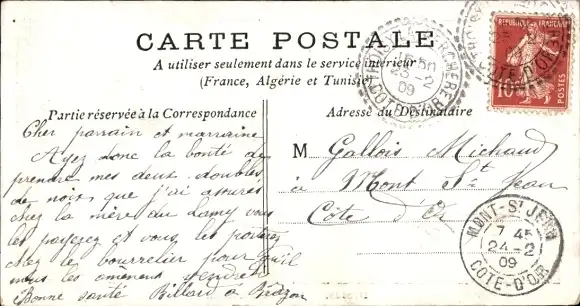 CARTE POSTALE
A utiliser seulement dans le service intérieur
(France, Algérie et Tunisie)
Partie réservée à la Correspondance
Adresse du Destinataire
Cher parrain et marraine
Ayez donc la bonté de
prendre mes deux doubles
de noix que j'ai assurés
chez la mère du Lamy vous
les payerez et vous les porterez
chez le bourrelier pour qu'il
nous les amènent vendredi
Bonne santé Billard à
M Gallois Michaud
à Mont St Jean
Côte d'Or
REPUBLIQUE FRANÇAISE
10
POSTES
23-2
09
COTE-D'OR
COTE-D'OR
MONT-ST JEAN
7 45
24-2
09
COTE-D'OR